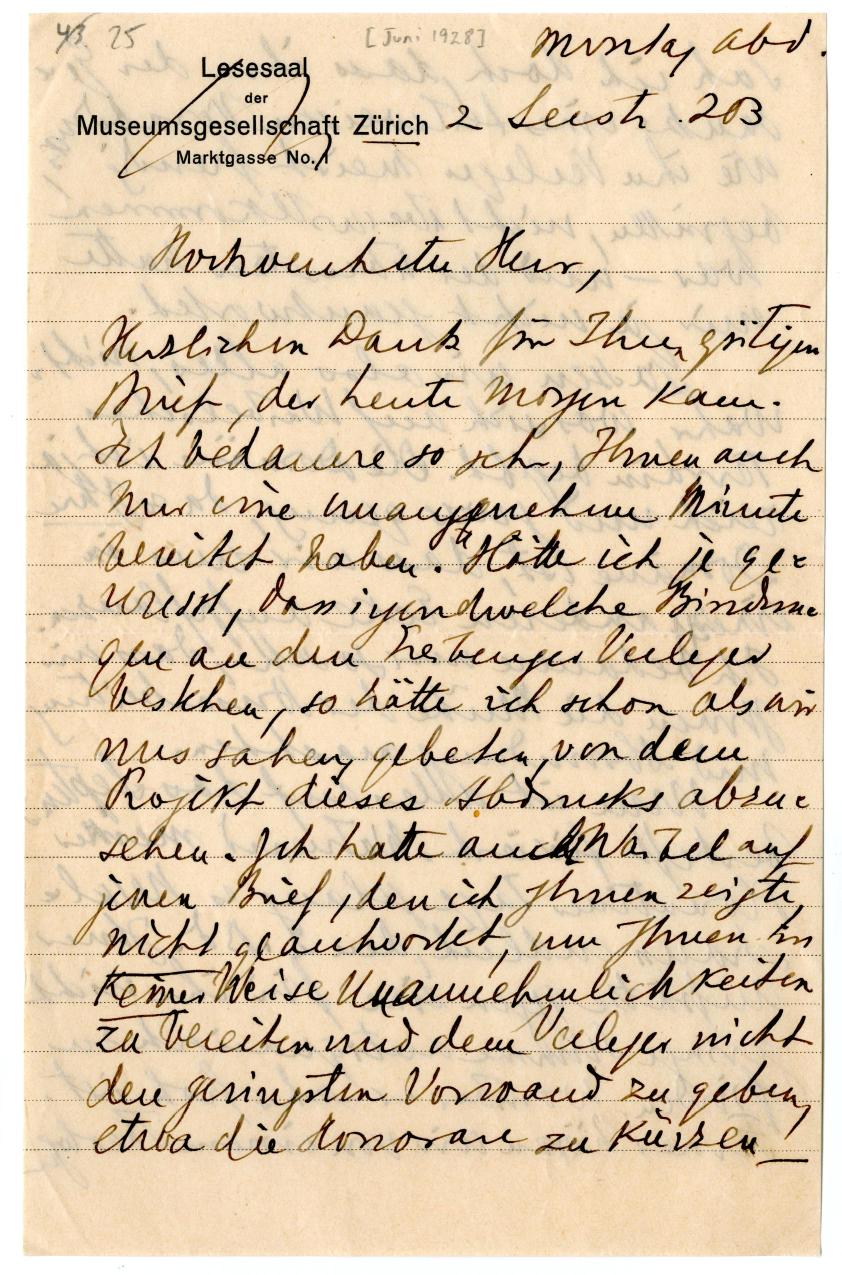 43. 25 [Juni 1928] Montag Abd.
Lesesaal
der
Museumsgesellschaft Zürich 2 Seestr. 203
Marktgasse No. 1
Hochverehrter Herr,
Herzlichen Dank für Ihren gütigen
Brief, der heute Morgen kam.
Ich bedauere so sehr, Ihnen auch
nur eine unangenehme Minute
bereitet haben. Hätte ich je ge-
wusst, dass irgendwelche Bindun-
gen an den Verleger
bestehen, so hätte ich schon als wir
uns sahen, gebeten, von dem
Projekt dieses Abdrucks abzu-
sehen. Ich hatte auch auf
jenen Brief, den ich Ihnen zeigte,
nicht geantwortet, um Ihnen in
keiner Weise Unannehmlichkeiten
zu bereiten und dem Verleger nicht
den geringsten Vorwand zu geben,
etwa die Honorare zu kürzen!